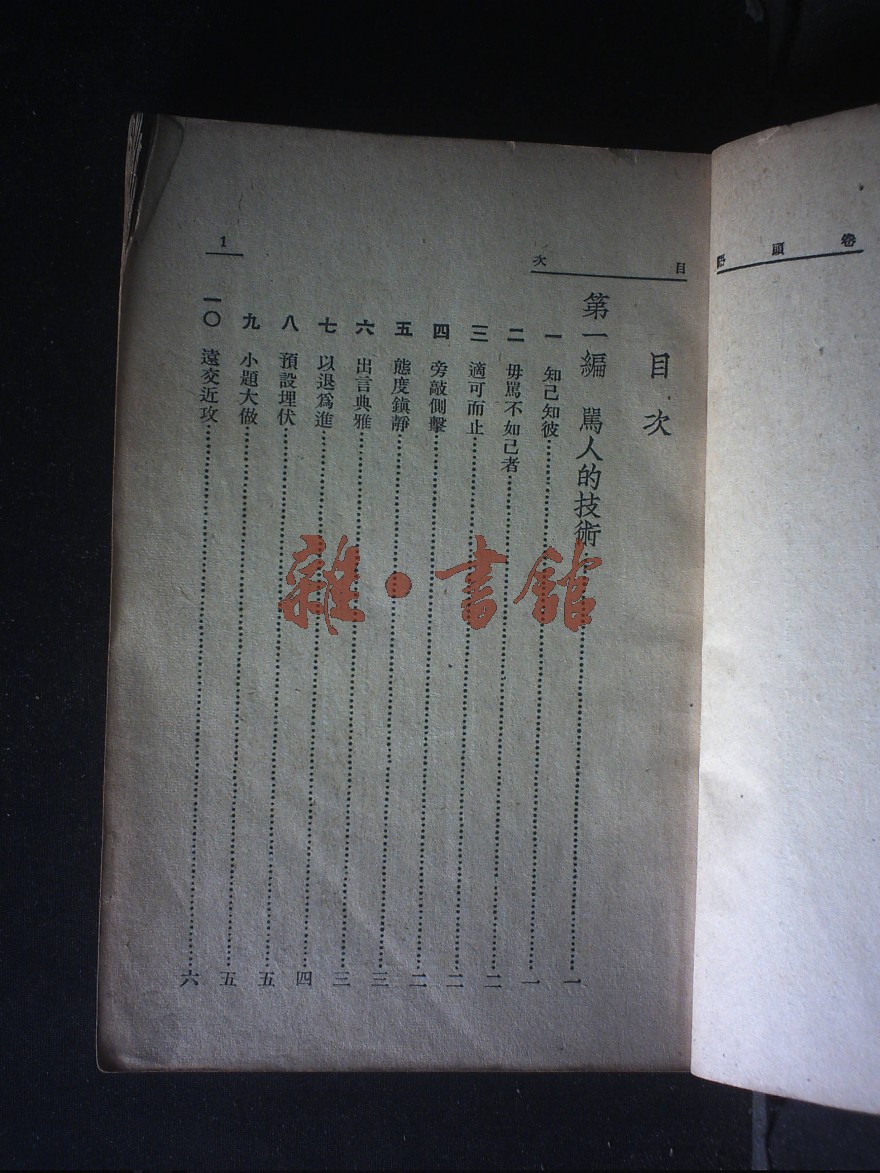 卷頭語
目次
目次
第一編 罵人的技術……一
一 知己知彼……一
二 毋罵不如己者……二
三 適可而止……二
四 旁敲側擊……二
五 態度鎮靜……三
六 出言典雅……三
七 以退爲進……四
八 預設埋伏……五
九 小題大做……五
一〇 遠交近攻……六
1
雜·書館